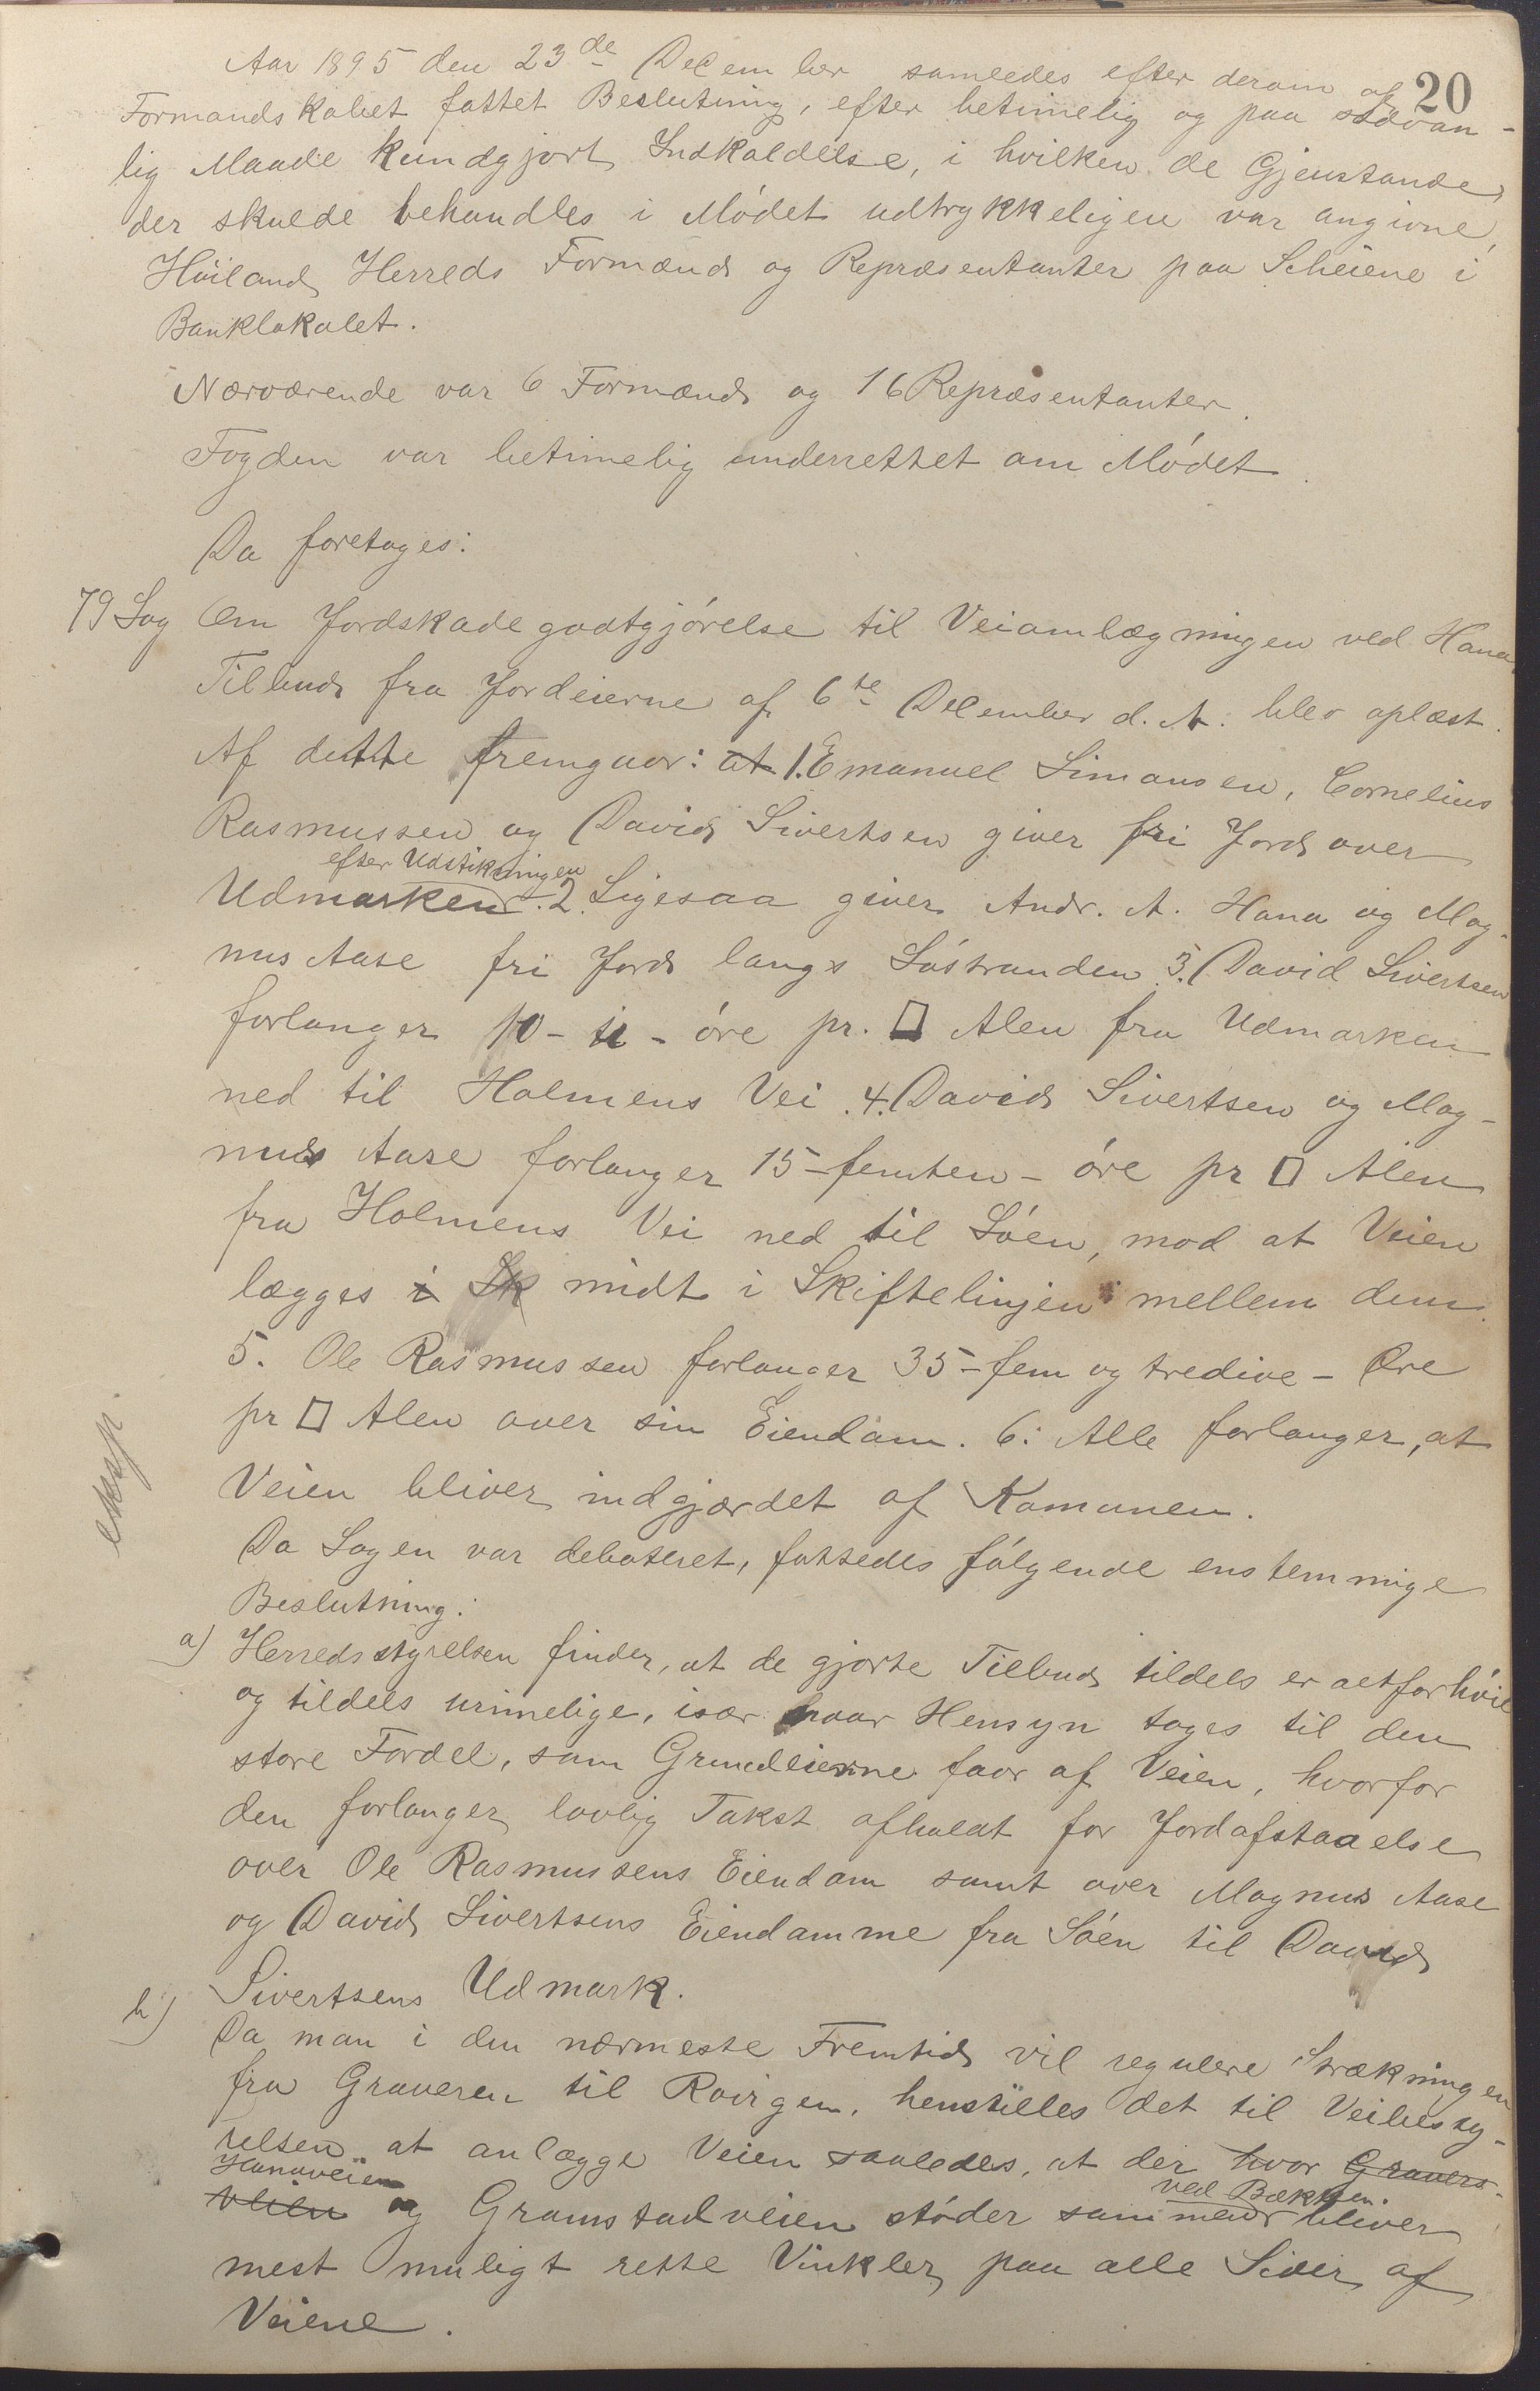 20
Aar 1895 den 23de December samledes efter derom af
Formandskabet fattet Beslutning, efter betimelig og paa sædvan-
lig Maade kundgjort Indkaldelse, i hvilken de Gjenstande
der skulde behandles i Mødet udtrykkeligen var angivne,
Høiland Herreds Formænd og Repræsentanter paa Scheiene i
Banklokalet.
Nærværende var 6 Formænd og 16 Repræsentanter.
Fogden var betimelig underrettet om Mødet.
Da foretoges:
79 Sag Om Jordskadegodtgjørelse til Veiomlægningen ved Hana
Tilbud fra Jordeierne af 6te December d. A. blev oplæst.
Af dette fremgaar: at 1. Emanuel Simonsen, Cornelius
Rasmussen og David Sivertsen giver fri Jord over
efter Udstikningen
Udmarken. 2. Ligesaa giver Andr. A. Hana og Mag-
nus Aase fri Jord langs Søstranden 3. David Sivertsen
forlanger 10 - ti - øre pr. □ Alen fra Udmarken
ned til Holmens Vei. 4. David Sivertsen og Mag-
nus Aase forlanger 15 - femten - øre pr □ Alen
fra Holmens Vei ned til Søen, mod at Veien
lægges i Sk midt i Skiftelinjen mellem dem.
5. Ole Rasmussen forlanger 35 - fem og tredive - Øre
pr □ Alen over sin Eiendom. 6: Alle forlanger, at
Veien bliver indgjærdet af Komunen.
eksp.
Da Sagen var debateret, fattedes følgende enstemmige
Beslutning:
a) Herredsstyrelsen finder, at de gjorte Tilbud tildels er altfor høie
og tildels urimelige, især naar Hensyn tages til den
store Fordel, som Grundeierne faar af Veien, hvorfor
den forlanger lovlig Takst afholdt for Jordafstaaelse
over Ole Rasmussens Eiendom samt over Magnus Aase
og David Sivertsens Eiendomme fra Søen til David
Sivertsens Udmark.
b) Da man i den nærmeste Fremtid vil regulere Strækningen
fra Graveren til Rovigen, henstilles det til Veibesty-
relsen at anlægge Veien saaledes, at der hvor Gravers-
Hanaveien ved Bækken.
veien og Gramstadveien støder sammen bliver
mest muligt rette Vinkler paa alle Sider af
Veiene.